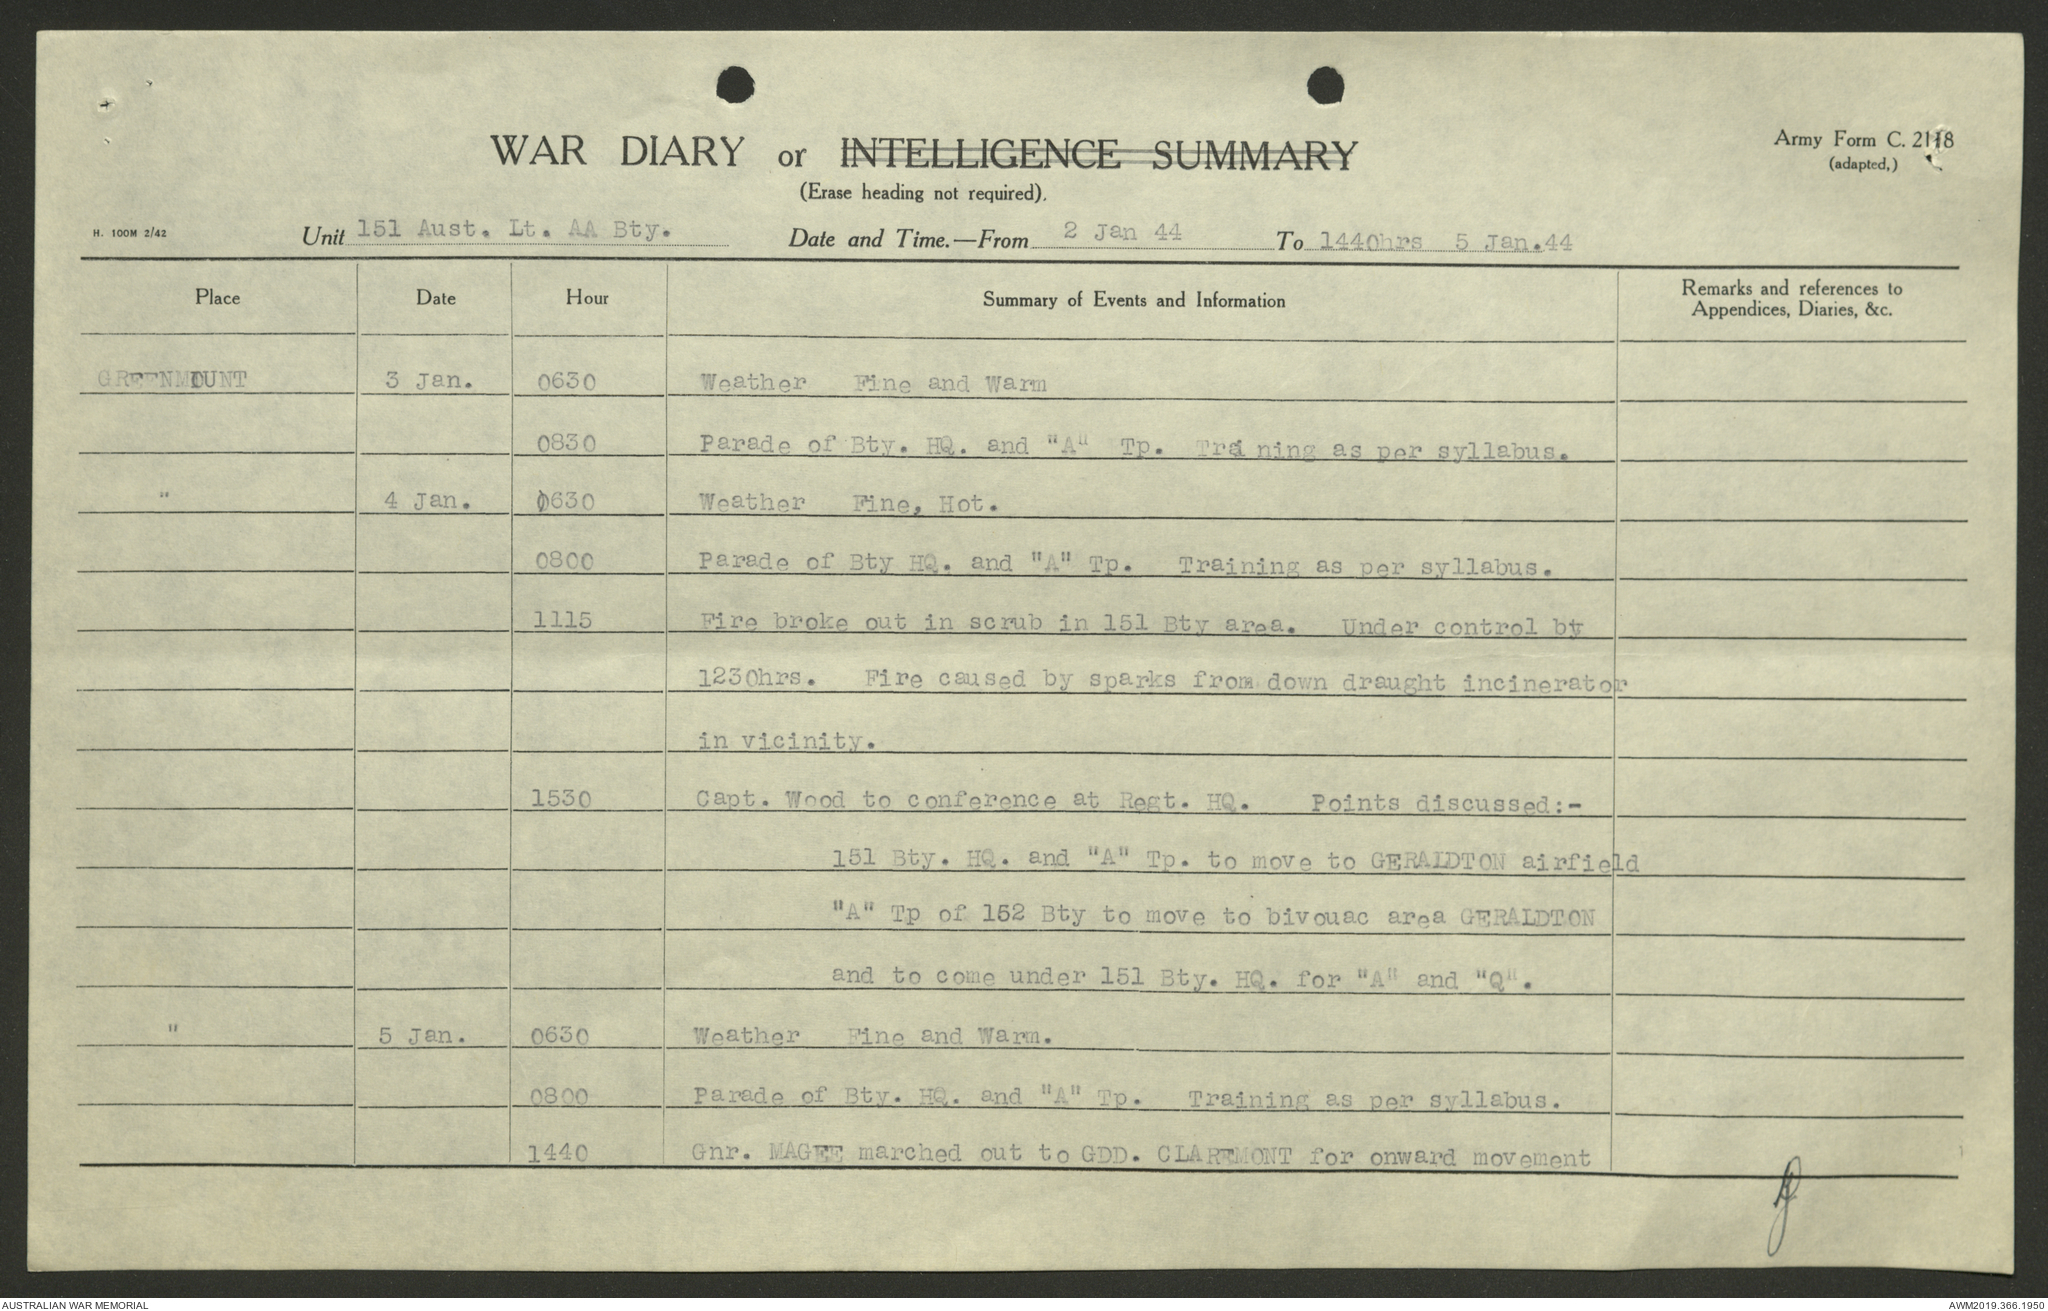 WAR DIARY or INTELLIGENCE SUMMARY
(Erase heading not required).
Army Form C. 2118
(adapted,)
H. 100M 2/42
Unit 151 Aust. Lt. AA Bty. Date and Time.—From 2 Jan 44 To 1440hrs 5 Jan.44
Place Date Hour Summary of Events and Information Remarks and references to
Appendices, Diaries, &c.
GREENMOUNT 3 Jan. 0630 Weather Fine and Warm
0830 Parade of Bty. HQ. and "A" Tp. Trai ning as per syllabus.
" 4 Jan. 0630 Weather Fine, Hot.
0800 Parade of Bty HQ. and "A" Tp. Training as per syllabus.
1115 Fire broke out in scrub in 151 Bty area. Under control by
1230hrs. Fire caused by sparks from down draught incinerator
in vicinity.
1530 Capt. Wood to conference at Regt. HQ. Points discussed:-
151 Bty. HQ. and "A" Tp. to move to GERALDTON airfield
"A" Tp of 152 Bty to move to bivouac area GERALDTON
and to come under 151 Bty. HQ. for "A" and "Q".
" 5 Jan. 0630 Weather Fine and Warm.
0800 Parade of Bty. HQ. and "A" Tp. Training as per syllabus.
1440 Gnr. MAGEE marched out to GDD. CLAREMONT for onward movement
AUSTRALIAN WAR MEMORIAL
AWM2019.366.1950